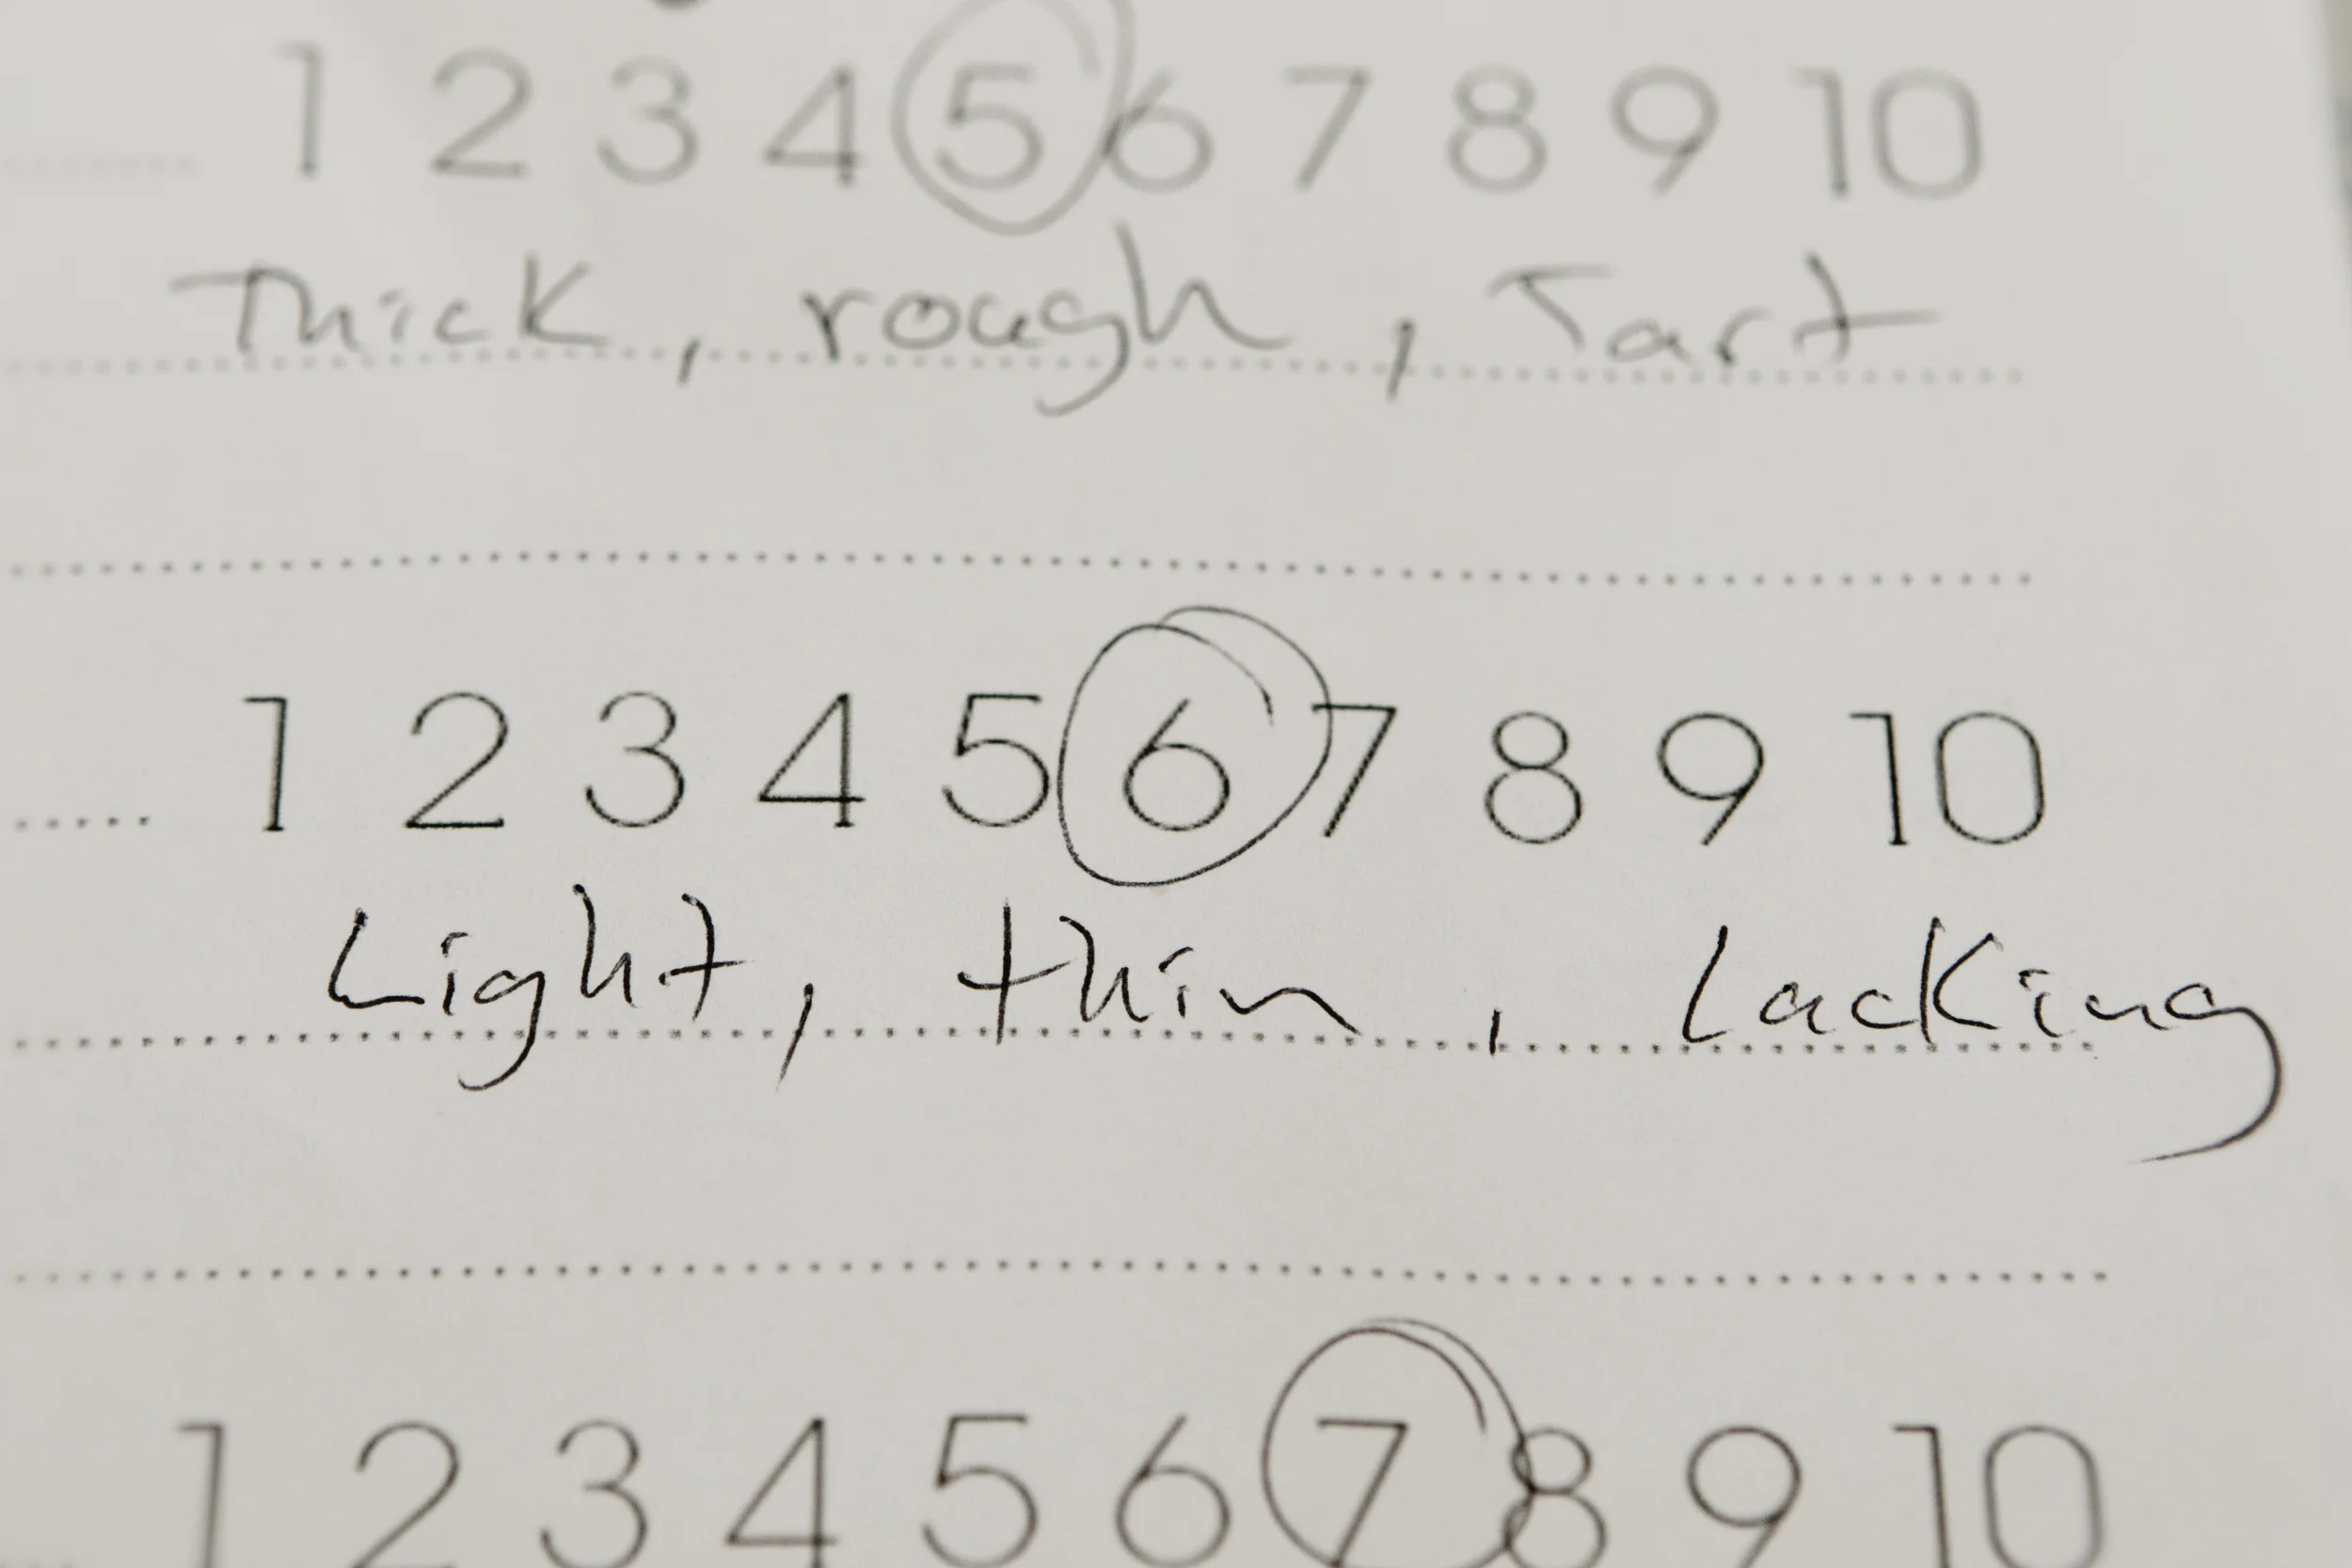 1 2 3 4 5 6 7 8 9 10
Thick, rough, Tart
1 2 3 4 5 6 7 8 9 10
Light, thin, lacking
1 2 3 4 5 6 7 8 9 10